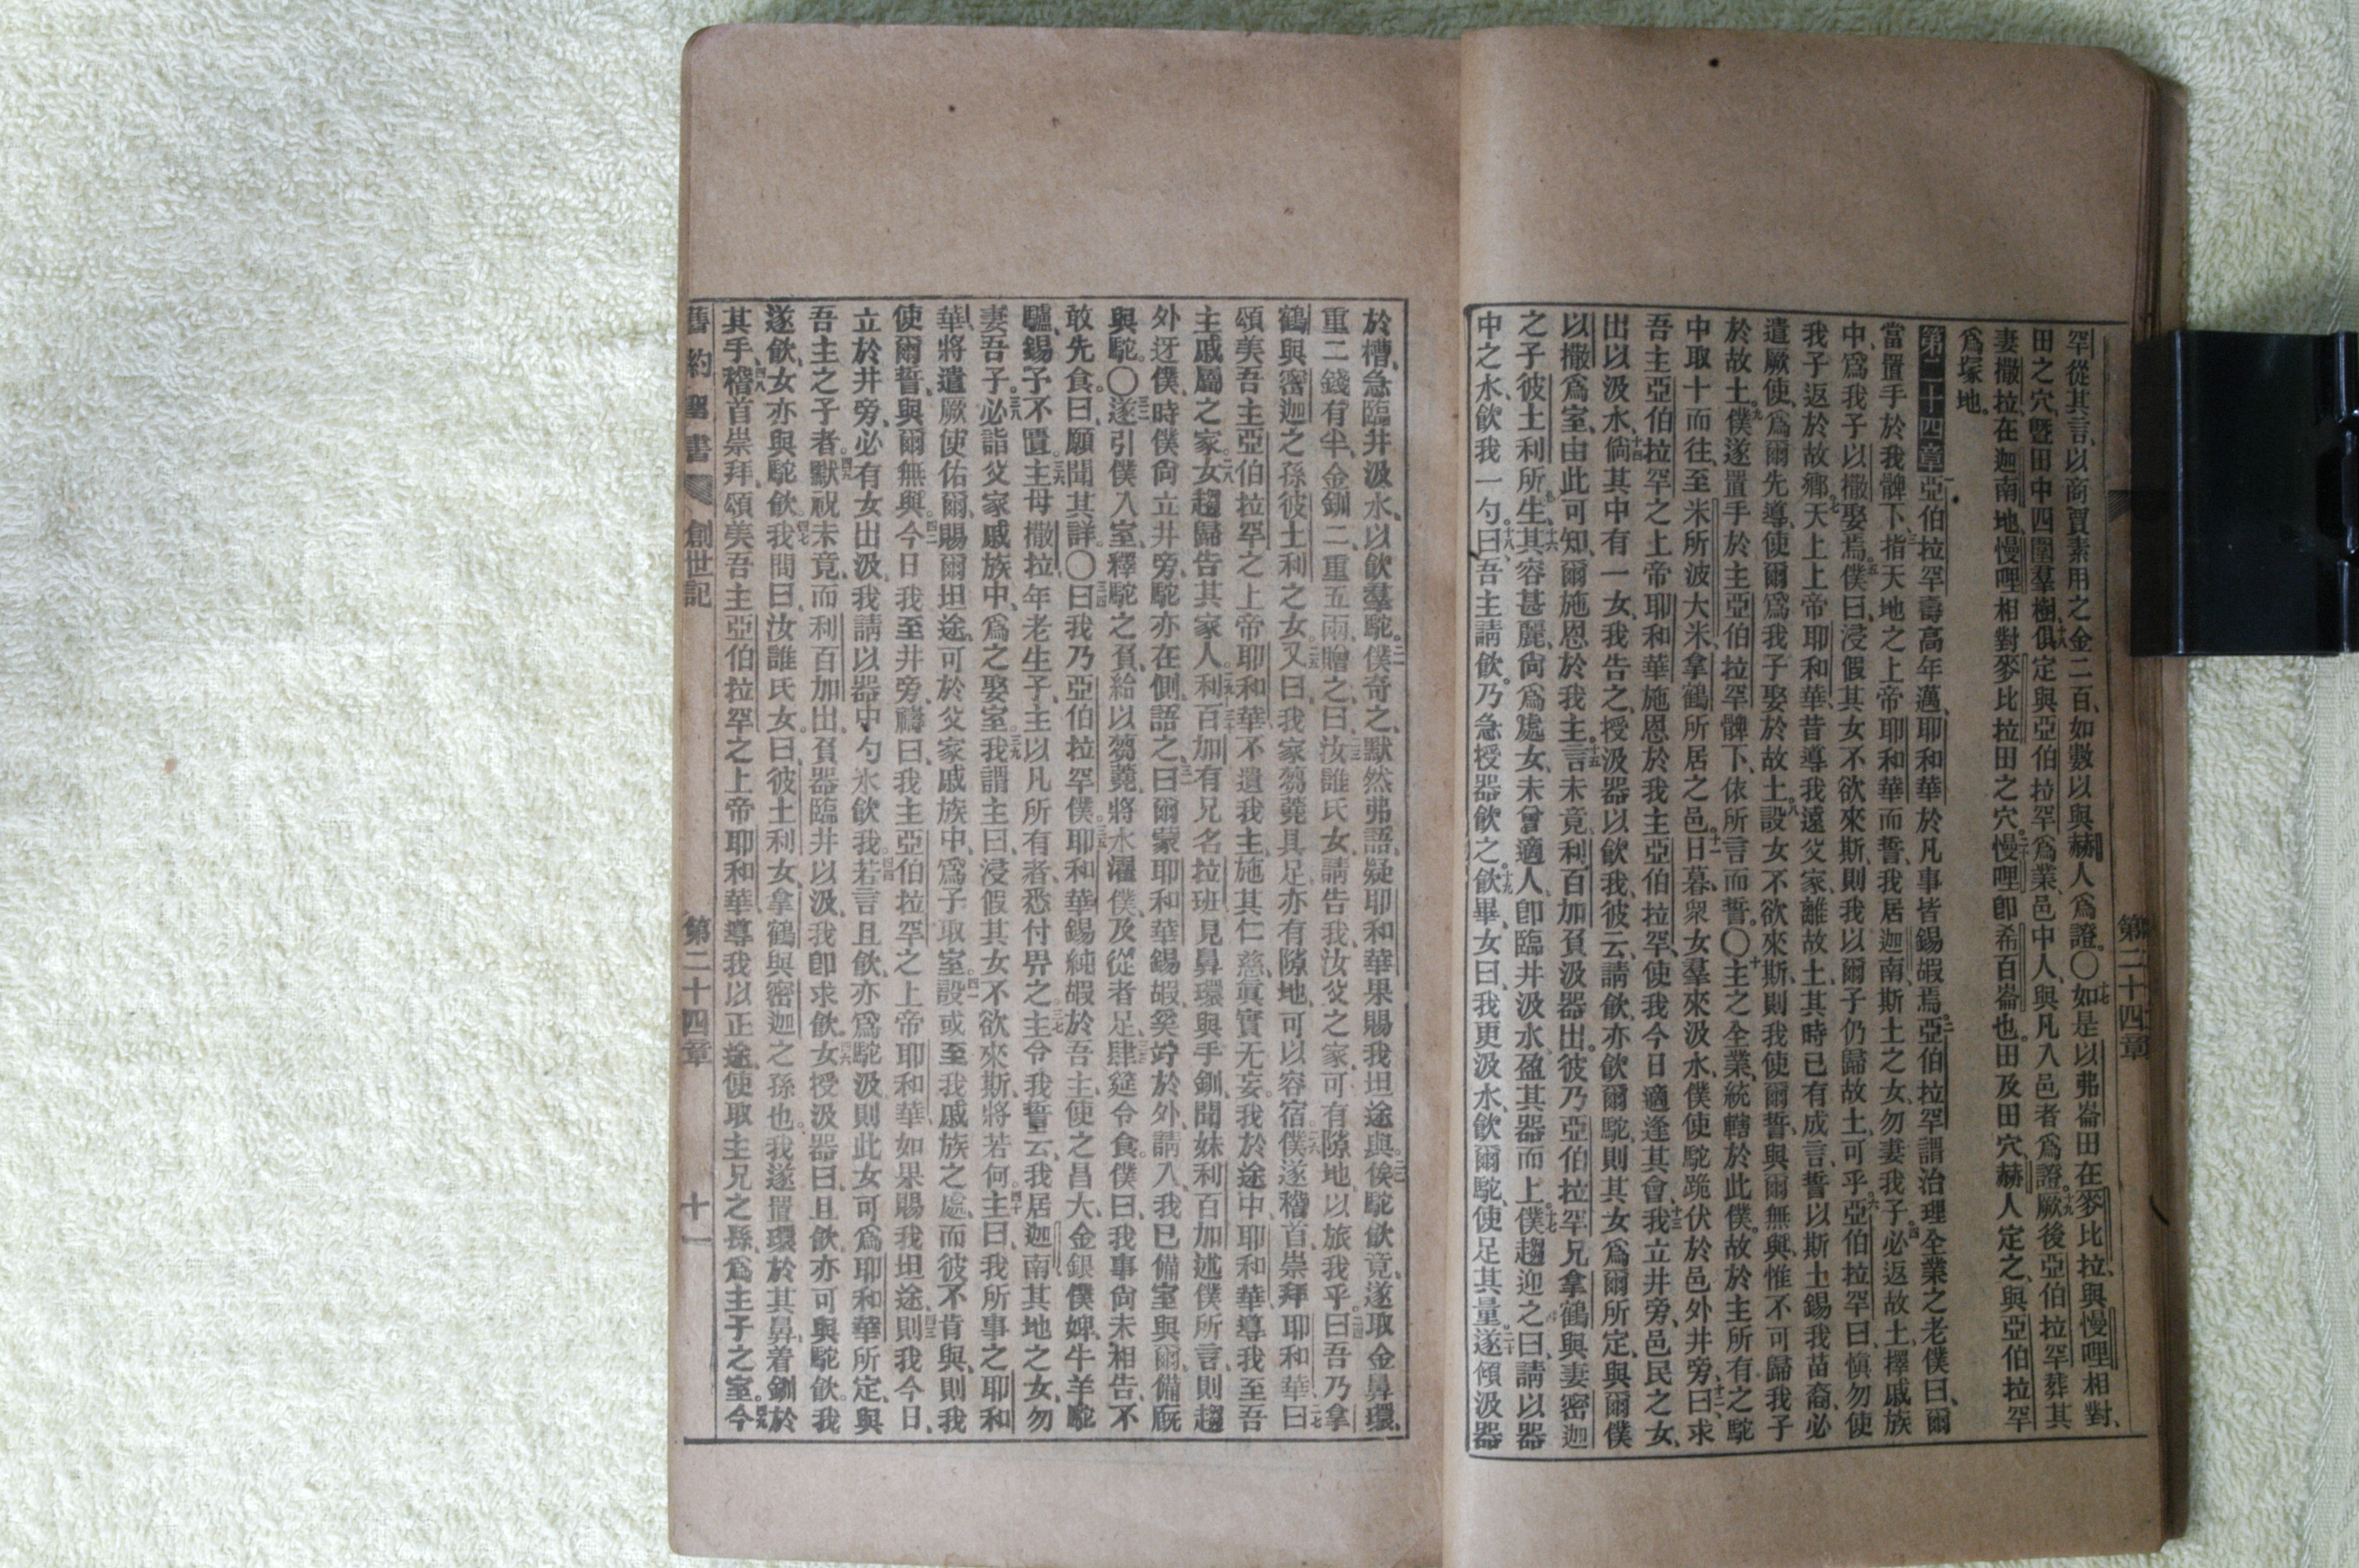 罕從其言、以商賈素用之金二百、如數以與赫人爲證。〇十七如是以弗崙田在麥比拉、與慢哩相對、
田之穴、曁田中四圍羣樹、十八俱定與亞伯拉罕爲業、邑中人、與凡入邑者爲證。十九厥後亞伯拉罕葬其
妻撒拉、在迦南地、慢哩相對麥比拉田之穴、二十慢哩卽希百崙也。田及田穴、赫人定之、與亞伯拉罕
爲塚地。
第二十四章 一亞伯拉罕壽高年邁、耶和華於凡事皆錫嘏焉。二亞伯拉罕謂治理全業之老僕曰、爾
當置手於我髀下、三指天地之上帝耶和華而誓、我居迦南、斯土之女、勿妻我子。四必返故土、擇戚族
中、爲我子以撒娶焉。五僕曰、浸假其女不欲來斯、則我以爾子仍歸故土、可乎。六亞伯拉罕曰、愼勿使
我子返於故鄉。七天上上帝耶和華、昔導我遠父家、離故土、其時已有成言、誓以斯土錫我苗裔、必
遣厥使、爲爾先導、使爾爲我子娶於故土。八設女不欲來斯、則我使爾誓、與爾無與、惟不可歸我子
於故土。九僕遂置手於主亞伯拉罕髀下、依所言而誓。〇十主之全業、統轄於此僕。故於主所有之駝
中取十而往、至米所波大米、拿鶴所居之邑。十一日暮、衆女羣來汲水、僕使駝跪伏於邑外井旁、十二曰、求
吾主亞伯拉罕之上帝耶和華、施恩於我主亞伯拉罕、使我今日適逢其會、十三我立井旁、邑民之女、
出以汲水、十四倘其中有一女、我告之、授汲器以飲我、彼云、請飲、亦飲爾駝、則其女爲爾所定、與爾僕
以撒爲室、由此可知、爾施恩於我主。十五言未竟、利百加負汲器出。彼乃亞伯拉罕兄拿鶴、與妻密迦
之子彼土利所生、十六其容甚麗、尙爲處女、未曾適人、卽臨井汲水、盈其器而上。十七僕趨迎之、曰、請以器
中之水、飲我一勺。十八曰、吾主請飲。乃急授器飲之。十九飲畢、女曰、我更汲水、飲爾駝、使足其量。二十遂傾汲器
第二十四章
於槽、急臨井汲水、以飲羣駝。二一僕奇之、默然弗語、疑耶和華果賜我坦途與。二二俟駝飲竟、遂取金鼻環、
重二錢有半、金釧二、重五兩、贈之、二三曰、汝誰氏女、請告我、汝父之家、可有隙地、以旅我乎。二四曰、吾乃拿
鶴與密迦之孫、彼土利之女、二五又曰、我家芻蕘具足、亦有隙地、可以容宿。二六僕遂稽首、崇拜耶和華曰、二七
頌美吾主亞伯拉罕之上帝耶和華、不遺我主、施其仁慈、眞實无妄。我於途中、耶和華導我至吾
主戚屬之家。二八女趨歸告其家人。二九利百加有兄名拉班、三十見鼻環與手釧、聞妹利百加述僕所言、則趨
外迓僕、時僕尙立井旁、駝亦在側、三一語之曰、爾蒙耶和華錫嘏、奚竚於外、請入、我已備室與爾、備廐
與駝。〇三二遂引僕入室、釋駝之負、給以芻蕘。將水濯僕、及從者足、三三肆筵令食。僕曰、我事尙未相告、不
敢先食。曰、願聞其詳。〇三四曰、我乃亞伯拉罕僕。三五耶和華錫純嘏於吾主、使之昌大、金銀僕婢、牛羊駝
驢、錫予不匱。三六主母撒拉、年老生子、主以凡所有者、悉付畀之。三七主令我誓云、我居迦南、其地之女、勿
妻吾子。三八必詣父家戚族中、爲之娶室。三九我謂主曰、浸假其女不欲來斯、將若何。四十主曰、我所事之耶和
華、將遣厥使佑爾、賜爾坦途、可於父家戚族中、爲子取室。四一設或至我戚族之處、而彼不肯與、則我
使爾誓、與爾無與。四二今日我至井旁、禱曰、我主亞伯拉罕之上帝耶和華、如果賜我坦途、四三則我今日、
立於井旁、必有女出汲、我請以器中勺水飲我、四四若言且飲、亦爲駝汲、則此女可爲耶和華所定、與
吾主之子者。四五默祝未竟、而利百加出、負器臨井以汲、我卽求飲。四六女授汲器曰、且飲、亦可與駝飲。我
遂飲、女亦與駝飲。四七我問曰、汝誰氏女。曰、彼土利女、拿鶴與密迦之孫也。我遂置環於其鼻、着釧於
其手、四八稽首崇拜、頌美吾主亞伯拉罕之上帝耶和華、導我以正途、使取主兄之孫、爲主子之室。四九今
舊約聖書 創世記 第二十四章 十一